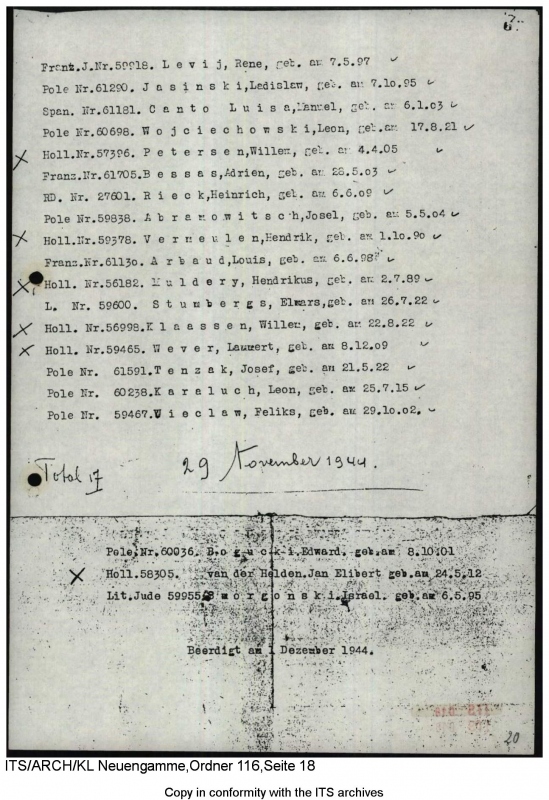 Franz.J.Nr.59918. L e v i j, Rene, geb. am 7.5.97
Pole Nr.61290. J a s i n s k i,Ladislaw, geb. am 7.10.95
Span. Nr.61181. C a n t o L u i s a,Manuel, geb. am 6.1.03
Pole Nr.60698. W o j c i e c h o w s k i,Leon, geb.am 17.8.21
Holl.Nr.57396. P e t e r s e n,Willem, geb. am 4.4.05
Franz.Nr.61705.B e s s a s,Adrien, geb. am 28.5.03
RD. Nr. 27601. R i e c k,Heinrich, geb. am 6.6.09
Pole Nr.59838. A b r a m o w i t s c h,Josel, geb. am 5.5.04
Holl.Nr.59378. V e r m e u l e n,Hendrik, geb. am 1.10.90
Franz.Nr.61130. A r b a u d,Louis, geb. am 6.6.98
Holl. Nr.56182. M u l d e r y, Hendrikus, geb. am 2.7.89
L. Nr. 59600. S t u m b e r g s, Elmars,geb. am 26.7.22
Holl. Nr.56998.K l a a s s e n, Willem, geb. am 22.8.22
Holl. Nr.59465. W e v e r, Lammert, geb. am 8.12.09
Pole Nr. 61591.T e n z a k, Josef, geb. am 21.5.22
Pole Nr. 60238.K a r a l u c h, Leon, geb. am 25.7.15
Pole Nr. 59467.W i e c l a w, Feliks, geb. am 29.10.02.
Total 17
29 November 1944.
Pole.Nr.60036. B o g u c k i,Edward. geb.am 8.10.01
Holl.58305. van der Helden.Jan Elibert geb.am 24.5.12
Lit.Jude 59955.S m o r g o n s k i.Israel. geb.am 6.5.95
Beerdigt am 1 Dezember 1944.
20
ITS/ARCH/KL Neuengamme,Ordner 116,Seite 18
Copy in conformity with the ITS archives